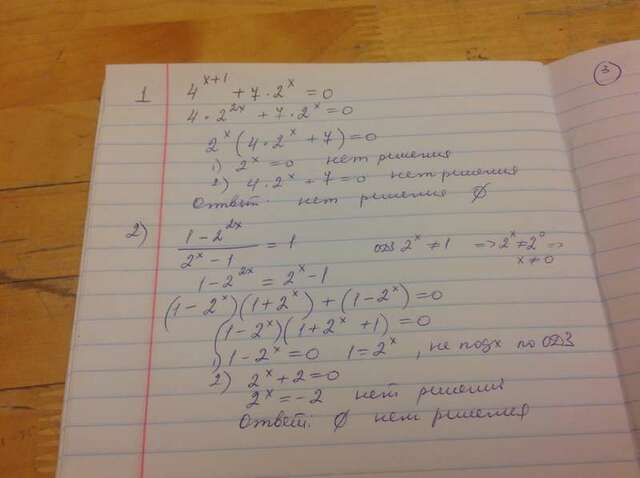 3
1 4^(x+1) + 7 · 2^x = 0
4 · 2^(2x) + 7 · 2^x = 0
2^x (4 · 2^x + 7) = 0
1) 2^x = 0 нет решения
2) 4 · 2^x + 7 = 0 нет решения
Ответ: нет решения ∅
2) (1 - 2^(2x)) / (2^x - 1) = 1 ОДЗ 2^x ≠ 1 => 2^x ≠ 2^0 =>
x ≠ 0
1 - 2^(2x) = 2^x - 1
(1 - 2^x)(1 + 2^x) + (1 - 2^x) = 0
(1 - 2^x)(1 + 2^x + 1) = 0
1) 1 - 2^x = 0 1 = 2^x, не подх по ОДЗ
2) 2^x + 2 = 0
2^x = -2 нет решения
Ответ: ∅ нет решения